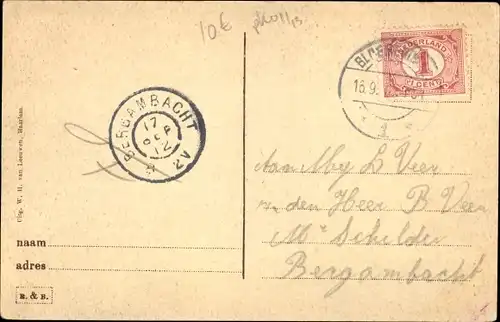 10€ pho11/13
NEDERLAND
1
CENT
16.9.
BERGAMBACHT
17 SEP 12
Aan Mej L Veer
den Heer B Veer
Mr Schilder
Bergambacht
Uitg. W. H. van Leeuwen, Haarlem.
naam
adres
R. & B.